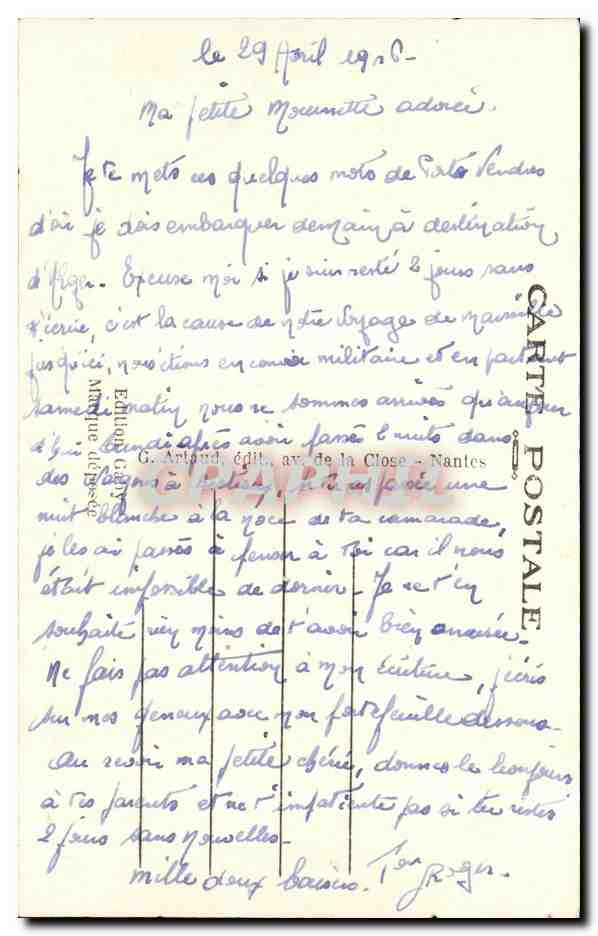 le 29 Avril 19
Ma petite adorée.
Je te mets ces quelques mots de Port Vendres
d'où je dois embarquer demain à destination
d'Alger. Excuse moi si je suis resté 2 jours sans
t'écrire, c'est la cause de notre voyage de
jusqu'ici, nous étions en convoi militaire et en partant
samedi matin nous ne sommes arrivés qu'aujour
d'hui lundi après avoir passé 2 nuits dans
des wagons à passé une
nuit blanche à la noce de ta camarade,
je les ai passés à penser à toi car il nous
était impossible de dormir. Je ne t'en
souhaite rien moins de t'avoir bien amusée.
Ne fais pas attention à mon écriture, j'écris
sur mes genoux avec mon portefeuille dessous.
Au revoir ma petite chérie, donnes le bonjour
à tes parents et ne t'impatiente pas si tu restes
2 jours sans nouvelles.
mille doux baisers. Ton Roger.
CARTE POSTALE
G. Artaud, édit., av. de la Close - Nantes
Edition Gaby
Marque déposée